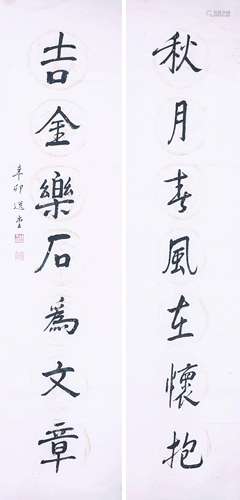 秋月春風在懷抱
吉金樂石爲文章
辛卯